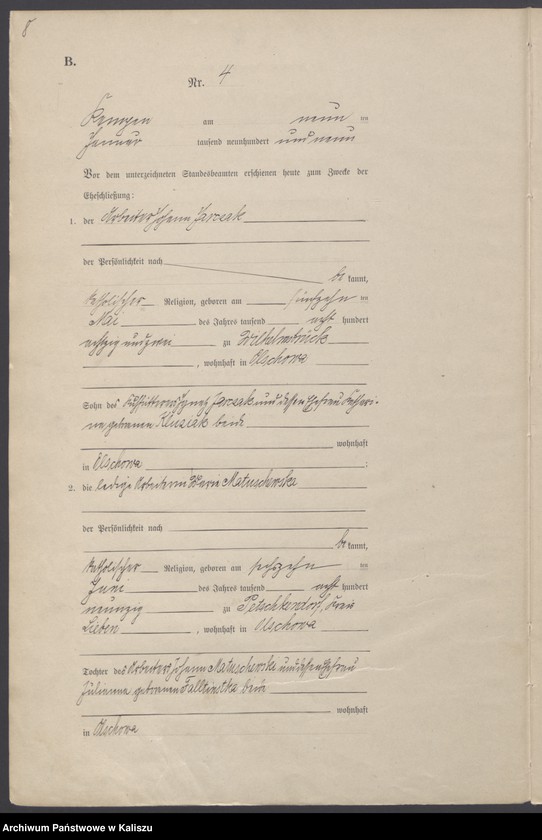 8
B.
Nr. 4
Kempen am neun ten
Januar tausend neunhundert und neun
Vor dem unterzeichneten Standesbeamten erschienen heute zum Zwecke der
Eheschließung:
1. der Arbeiter Johann Jarzak
der Persönlichkeit nach
be kannt,
katholischer Religion, geboren am fünfzehn ten
Mai des Jahres tausend acht hundert
achtzig und zwei zu Wilhelmsbrück
, wohnhaft in Olschowa
Sohn des Ignatz Jarzak und dessen Ehefrau Kathari-
na geborenen Klusiak beide
wohnhaft
in Olschowa ;
2. die ledige Arbeiterin Maria Matuschewska
der Persönlichkeit nach
be kannt,
katholischer Religion, geboren am sechzehn ten
Juni des Jahres tausend acht hundert
neunzig zu Petschkendorf, Kreis
Lüben , wohnhaft in Olschowa
Tochter des Arbeiters Johann Matuschewski und dessen Ehefrau
Julianna geborenen beide
wohnhaft
in Olschowa
Archiwum Państwowe w Kaliszu